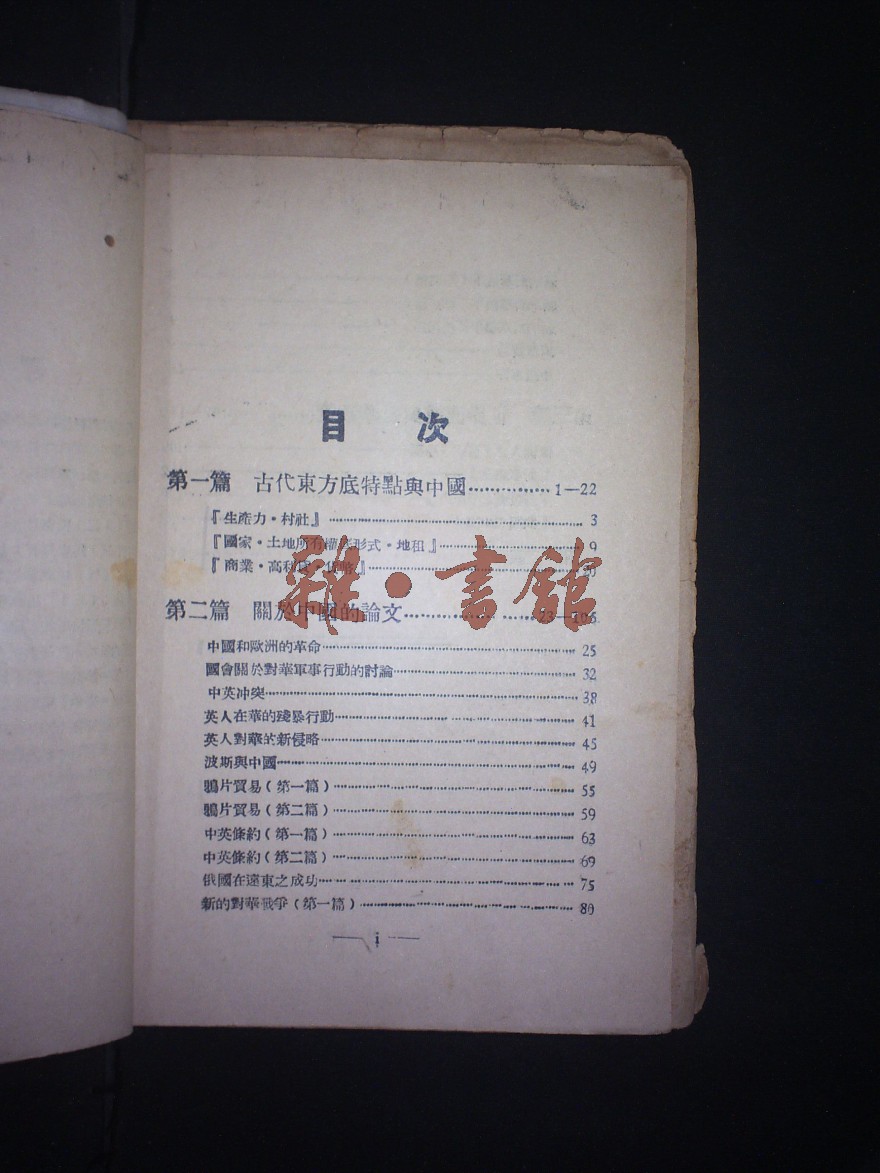 目 次
第一篇 古代東方底特點與中國……………1—22
『生產力・村社』……………3
『國家・土地所有權底形式・地租』……………9
『商業・高利貸・』……………
第二篇 關於中國的論文……………23—106
中國和歐洲的革命……………25
國會關於對華軍事行動的討論……………32
中英冲突……………38
英人在華的殘暴行動……………41
英人對華的新侵略……………45
波斯與中國……………49
鴉片貿易(第一篇)……………55
鴉片貿易(第二篇)……………59
中英條約(第一篇)……………63
中英條約(第二篇)……………69
俄國在遠東之成功……………75
新的對華戰爭(第一篇)……………80
i
雜・書館